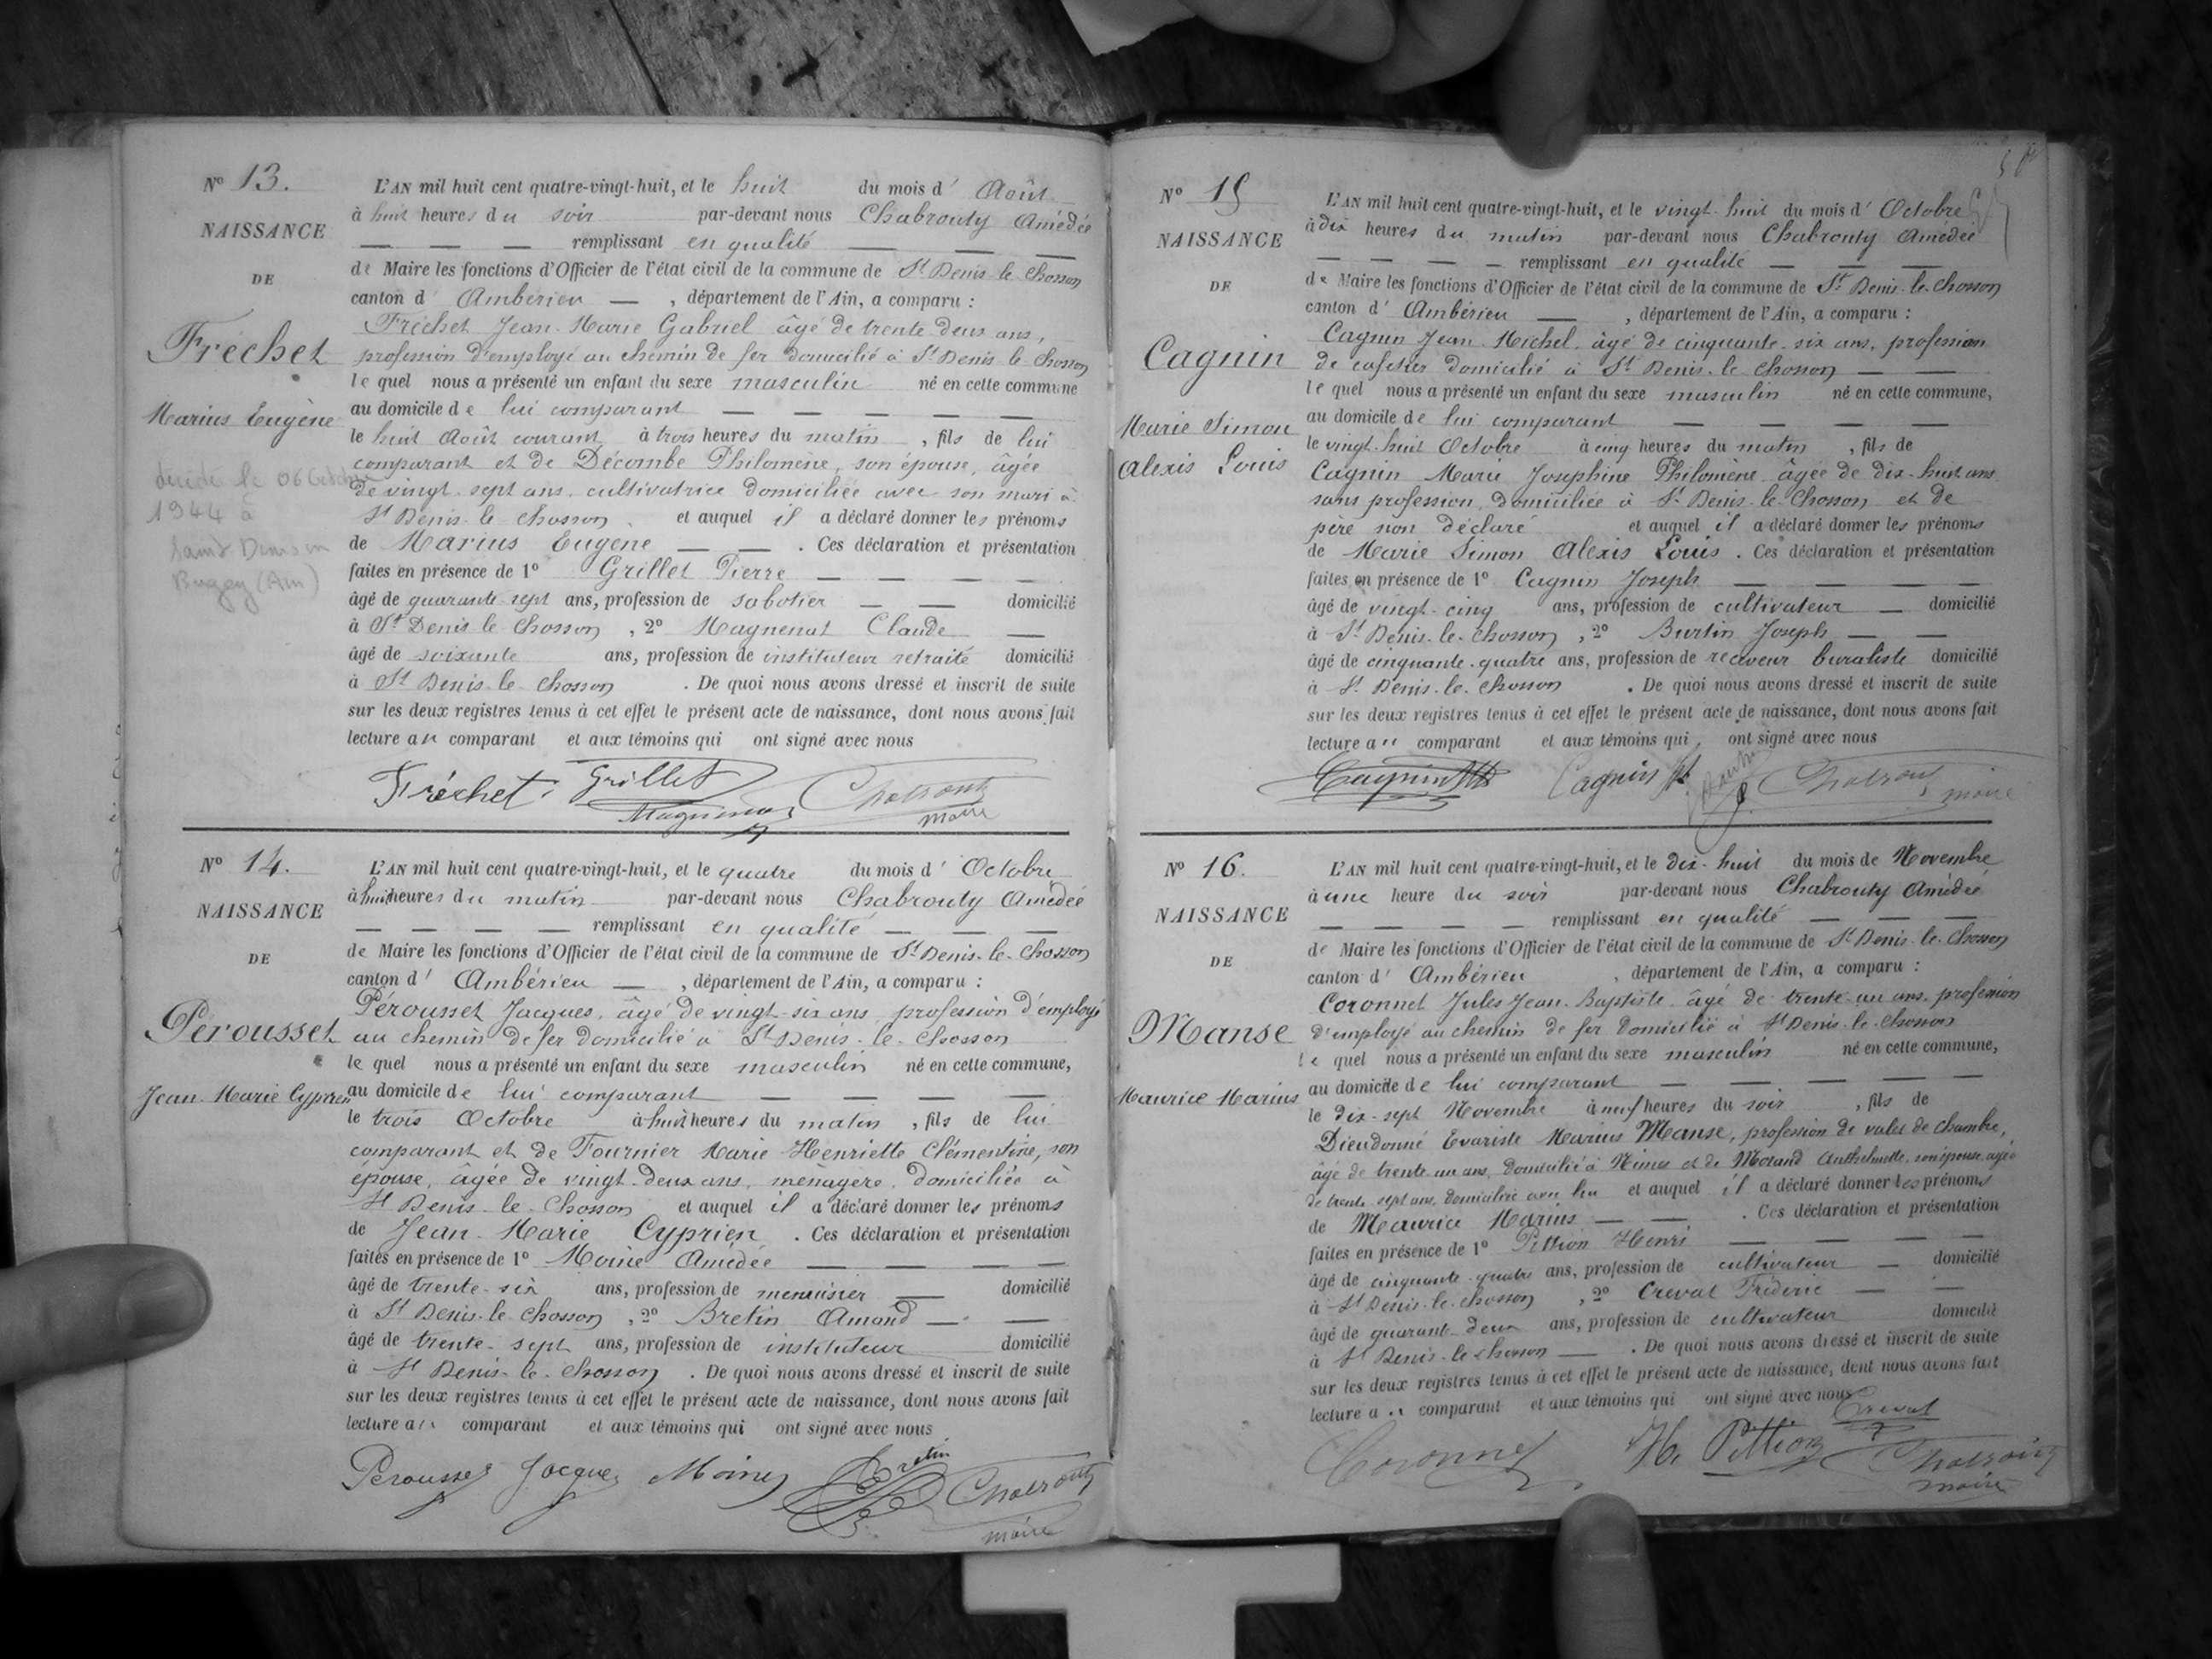 N° 13.
NAISSANCE
DE
Fréchet
Marius Eugène
décédé le 06 Octobre
1944 à
Saint Denis en
Bugey (Ain)
L'AN mil huit cent quatre-vingt-huit, et le huit du mois d' Août
à huit heures du soir par-devant nous Chabrouty Amédée
— — — remplissant en qualité — — —
de Maire les fonctions d'Officier de l'état civil de la commune de St Denis-le-Chosson
canton d' Ambérieu — , département de l'Ain, a comparu :
Fréchet Jean-Marie Gabriel âgé de trente deux ans,
profession d'employé au chemin de fer domicilié à St Denis-le-Chosson
le quel nous a présenté un enfant du sexe masculin né en cette commune
au domicile de lui comparant — — — — —
le huit Août courant à trois heures du matin , fils de lui
comparant et de Décombe Philomène, son épouse, âgée
de vingt-sept ans, cultivatrice domiciliée avec son mari à
St Denis-le-Chosson, et auquel il a déclaré donner les prénoms
de Marius Eugène — — . Ces déclaration et présentation
faites en présence de 1° Grillet Pierre — — — —
âgé de quarante-sept ans, profession de sabotier — — domicilié
à St Denis le Chosson , 2° Magnenat Claude —
âgé de soixante ans, profession de instituteur retraité domicilié
à St Denis-le-Chosson . De quoi nous avons dressé et inscrit de suite
sur les deux registres tenus à cet effet le présent acte de naissance, dont nous avons fait
lecture au comparant et aux témoins qui ont signé avec nous
Fréchet Grillet
Magnenat Chabrouty
maire
N° 14.
NAISSANCE
DE
Pérousset
Jean-Marie Cyprien
L'AN mil huit cent quatre-vingt-huit, et le quatre du mois d' Octobre
à huit heures du matin par-devant nous Chabrouty Amédée
— — — — remplissant en qualité — — —
de Maire les fonctions d'Officier de l'état civil de la commune de St Denis-le-Chosson
canton d' Ambérieu — , département de l'Ain, a comparu :
Pérousset Jacques, âgé de vingt-six ans, profession d'employé
au chemin de fer domicilié à St Denis-le-Chosson
le quel nous a présenté un enfant du sexe masculin né en cette commune,
au domicile de lui comparant — — — —
le trois Octobre à huit heures du matin , fils de lui
comparant et de Fournier Marie Henriette Clémentine, son
épouse, âgée de vingt-deux ans, ménagère, domiciliée à
St Denis-le-Chosson et auquel il a déclaré donner les prénoms
de Jean-Marie Cyprien . Ces déclaration et présentation
faites en présence de 1° Moine Amédée — — — —
âgé de trente-six ans, profession de menuisier — domicilié
à St Denis-le-Chosson , 2° Bretin Amand — —
âgé de trente-sept ans, profession de instituteur domicilié
à St Denis-le-Chosson . De quoi nous avons dressé et inscrit de suite
sur les deux registres tenus à cet effet le présent acte de naissance, dont nous avons fait
lecture au comparant et aux témoins qui ont signé avec nous
Pérousset Jacques Moine Bretin Chabrouty
maire
N° 15
NAISSANCE
DE
Cagnin
Marie Simon
Alexis Louis
L'AN mil huit cent quatre-vingt-huit, et le vingt-huit du mois d' Octobre
à dix heures du matin par-devant nous Chabrouty Amédée
— — — — remplissant en qualité — — —
de Maire les fonctions d'Officier de l'état civil de la commune de St Denis-le-Chosson
canton d' Ambérieu — , département de l'Ain, a comparu :
Cagnin Jean-Michel, âgé de cinquante-six ans, profession
de cafetier domicilié à St Denis-le-Chosson — —
le quel nous a présenté un enfant du sexe masculin né en cette commune,
au domicile de lui comparant — — — — —
le vingt-huit Octobre à cinq heures du matin , fils de
Cagnin Marie Joséphine Philomène âgée de dix-huit ans
sans profession, domiciliée à St Denis-le-Chosson et de
père non déclaré et auquel il a déclaré donner les prénoms
de Marie Simon Alexis Louis . Ces déclaration et présentation
faites en présence de 1° Cagnin Joseph — — — —
âgé de vingt-cinq ans, profession de cultivateur — domicilié
à St Denis-le-Chosson , 2° Burtin Joseph — —
âgé de cinquante-quatre ans, profession de receveur buraliste domicilié
à St Denis-le-Chosson . De quoi nous avons dressé et inscrit de suite
sur les deux registres tenus à cet effet le présent acte de naissance, dont nous avons fait
lecture au comparant et aux témoins qui ont signé avec nous
Cagnin Cagnin Chabrouty
maire
N° 16.
NAISSANCE
DE
Manse
Maurice Marius
L'AN mil huit cent quatre-vingt-huit, et le dix-huit du mois de Novembre
à une heure du soir par-devant nous Chabrouty Amédée
— — — — remplissant en qualité — — —
de Maire les fonctions d'Officier de l'état civil de la commune de St Denis-le-Chosson
canton d' Ambérieu , département de l'Ain, a comparu :
Coronnet Jules Jean-Baptiste âgé de trente-un ans, profession
d'employé au chemin de fer domicilié à St Denis-le-Chosson
le quel nous a présenté un enfant du sexe masculin né en cette commune,
au domicile de lui comparant — — — — —
le dix-sept Novembre à neuf heures du soir , fils de
Dieudonné Evariste Marius Manse, profession de valet de chambre,
âgé de trente un ans, domicilié à Nîmes et de Morand Anthelmette, son épouse, âgée
de trente-sept ans, domiciliée avec lui et auquel il a déclaré donner les prénoms
de Maurice Marius — — . Ces déclaration et présentation
faites en présence de 1° Pittion Henri — — — —
âgé de cinquante-quatre ans, profession de cultivateur — domicilié
à St Denis-le-Chosson , 2° Creval Fréderic — —
âgé de quarante-deux ans, profession de cultivateur domicilié
à St Denis-le-Chosson — . De quoi nous avons dressé et inscrit de suite
sur les deux registres tenus à cet effet le présent acte de naissance, dont nous avons fait
lecture au comparant et aux témoins qui ont signé avec nous
Creval
Coronnet H. Pittion Chabrouty
maire